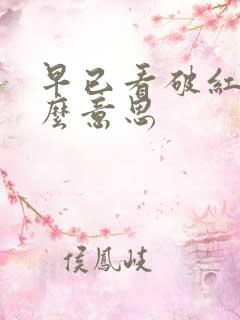 早已看破紅
麼意思
侯鳳岐